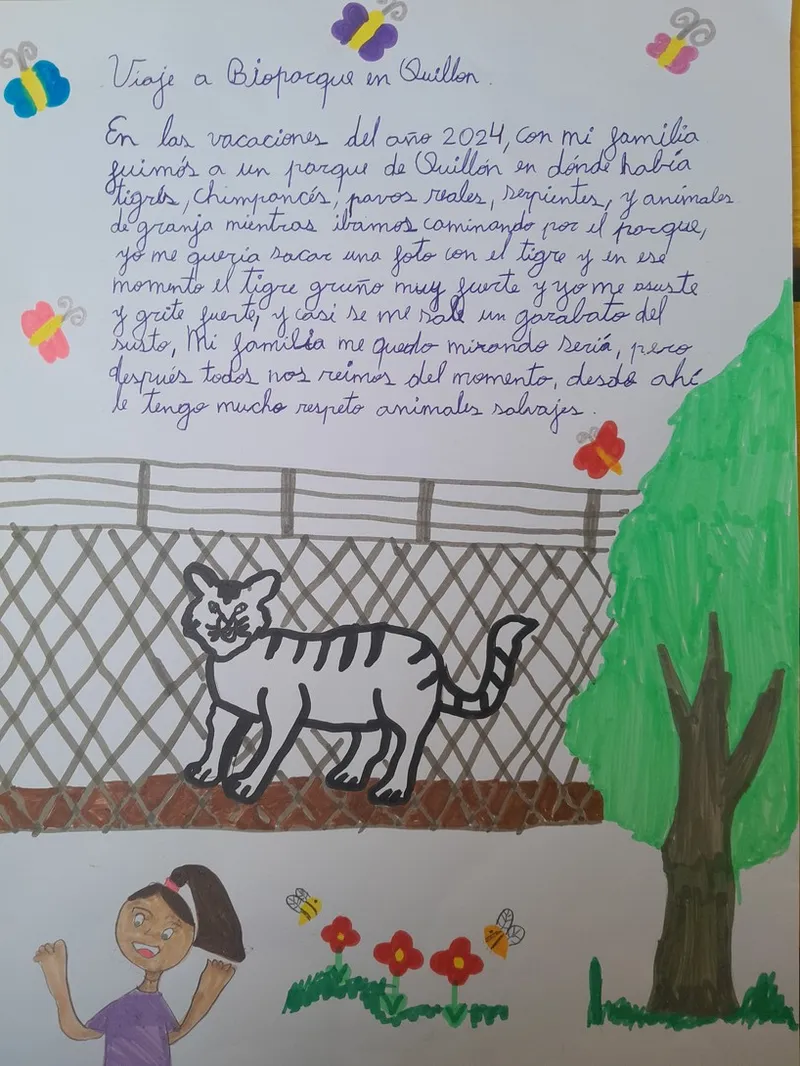 Viaje a Bioparque en Quillon.
En las vacaciones del año 2024, con mi familia
fuimós a un parque de Quillón en dónde había
tigrés, chimpancés, pavos reales, serpientes, y animales
de granja mientras ibamos caminando por el parque,
yo me quería sacar una foto con el tigre y en ese
momento el tigre gruño muy fuerte y yo me asuste
y grite fuerte, y casi se me sale un garabato del
susto, Mi familia me quedo mirando seria, pero
después todos nos reimos del momento, desde ahí
le tengo mucho respeto animales salvajes.